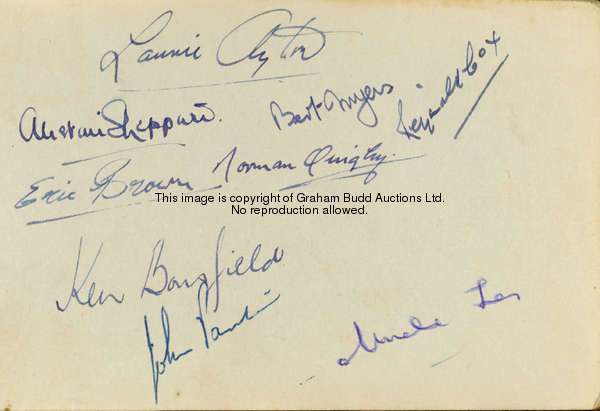 Laurie Ayton
Alistair Sheppard.
Bert
Reginald Cox
Eric Brown
Norman Quigley.
This image is copyright of Graham Budd Auctions Ltd.
No reproduction allowed.
Ken Bousfield
John
Uncle Les